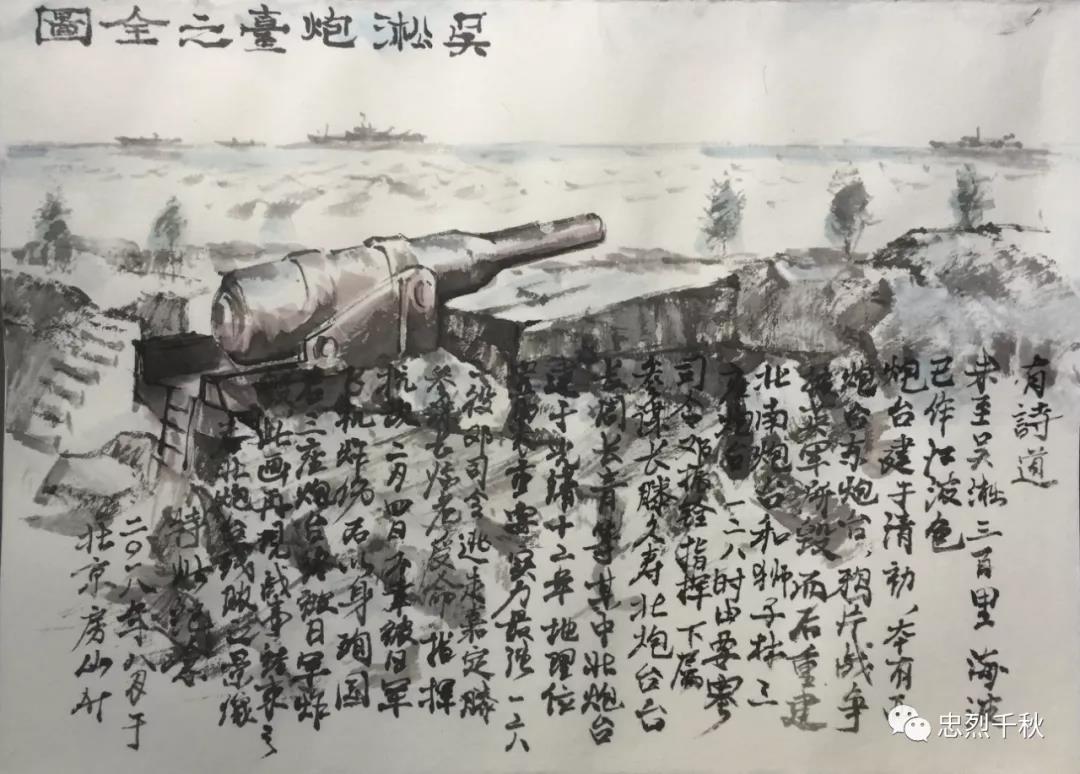 吴淞炮臺之全圖
有詩道
未至吴淞三百里 海波
已作江波色
炮台建于清初、本有西
炮台东炮台，鸦片战争
被英军所毁 而后重建
北南炮台和狮子林三
座炮台 一二八时由要塞
司令邓振銓指挥 下属
参谋长滕久寿北炮台台
长周长青等其中北炮台
建于光緒十二年地理位
最强 一二八
一役邓司令逃走嘉定滕
参謀长 受命 指挥
抗敌 二月四日 被日军
飞机炸伤 后以身殉国
右三座炮台均被日军炸
此画再現战事結束之
北炮台残破之景像
特此
二〇一八年八月于
北京房山
忠烈千秋